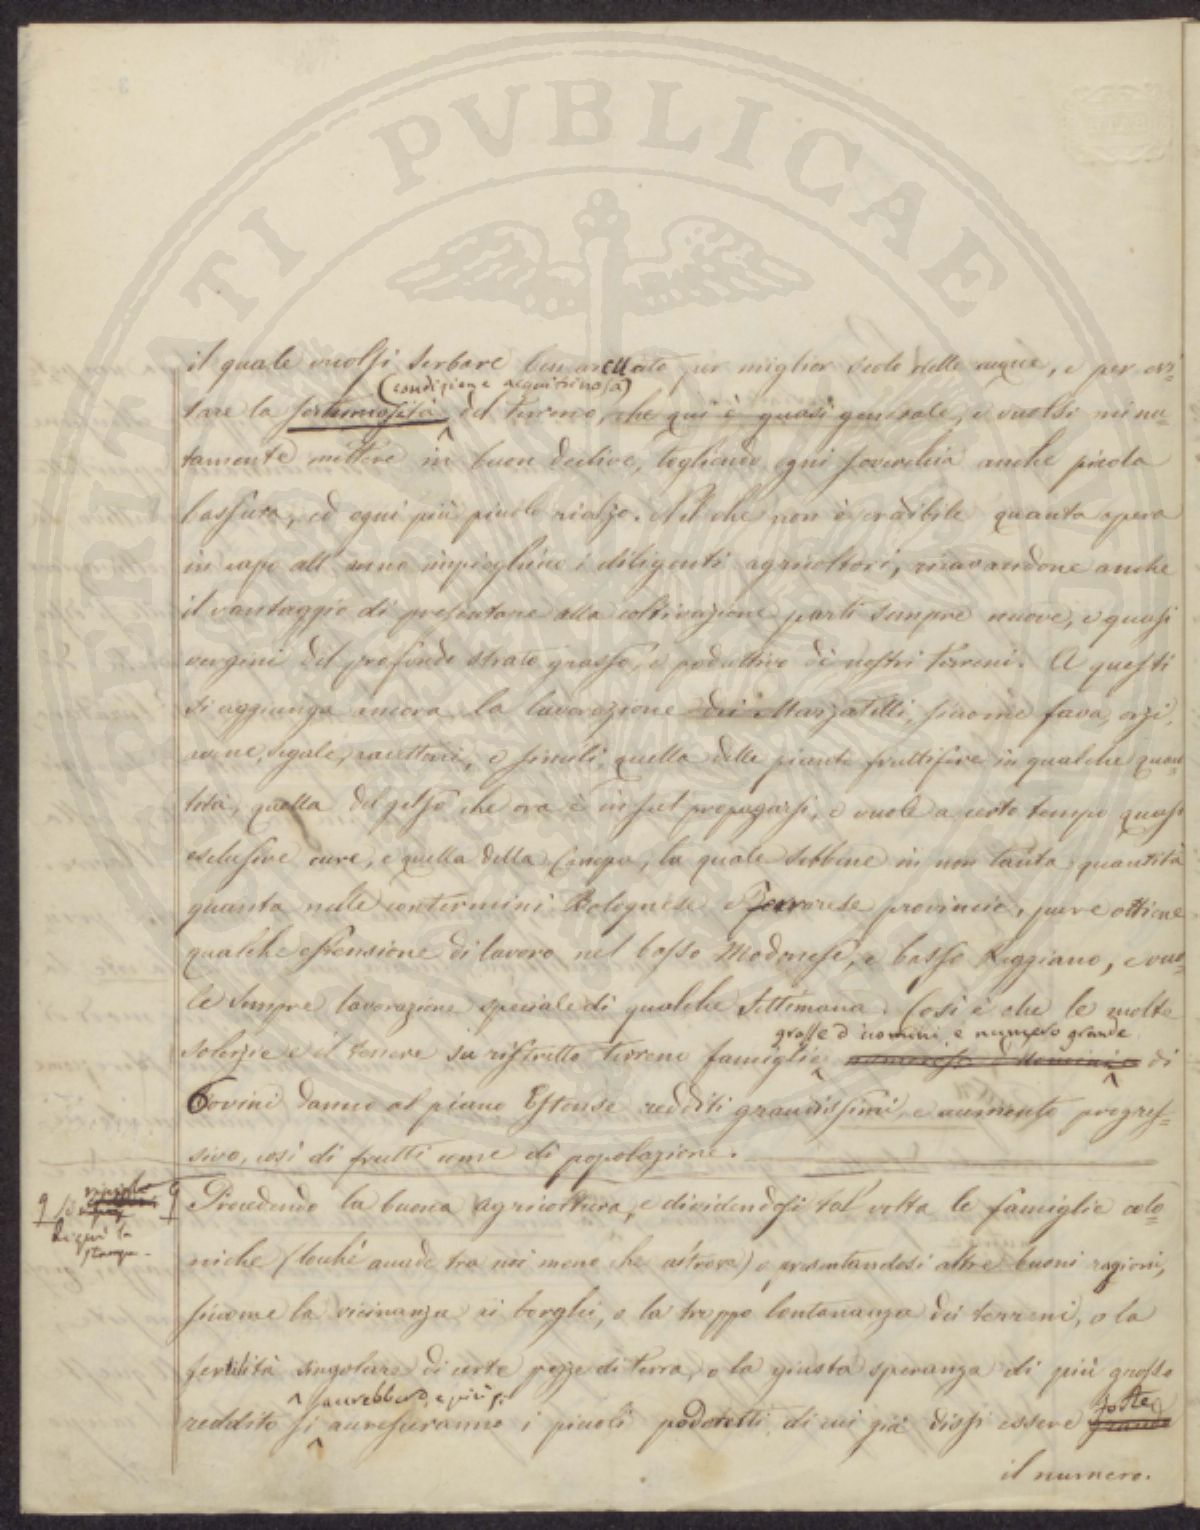 VERITATI PVBLICAE
il quale vuolsi serbare ben arcuato per miglior scolo delle acque, e per evi-
(condizione acquitrinosa)
tare la sortumosità del terreno, che qui è quasi generale, e vuolsi minu-
tamente mettere in buon declive, togliendo ogni soverchia anche picola
bassura, ed ogni più picolo rialzo. Nel che non è credibile quanta opera
in capo all'anno impieghino i diligenti agricoltori, ricavandone anche
il vantaggio di presentare alla coltivazione parti sempre nuove, e quasi
vergini del profondo strato grasso, e produttivo de' nostri terreni. A questi
si aggiunga ancora la lavorazione dei Marzatelli, siccome fava, orzi,
avene, segale, e simili, quella delle piante fruttifere in qualche quan-
tità, quella del gelso che ora è in sul propagarsi, e vuole a certo tempo quasi
esclusive cure, e quella della Canapa, la quale sebbene in non tanta quantità
quanta nelle contermini Bolognese e Ferrarese provincie, pure ottiene
qualche estensione di lavoro nel basso Modonese, e basso Reggiano, e vuo-
le sempre lavorazione speciale di qualche settimana. Così è che le molte
grosse d'uomini, e numero grande
solerzie e il tenere su ristretto terreno famiglie numerose di
Bovini danno al piano Estense redditi grandissimi, e aumento progres-
sivo, così di frutti come di popolazione.
Prendendo la buona agricoltura, e dividendosi tal volta le famiglie colo-
niche (locchè accade tra noi meno che altrove) e presentandosi altre buoni ragioni,
siccome la vicinanza ai borghi, o la troppo lontananza dei terreni, o la
fertilità singolare di certe pezze di terra, o la giusta speranza di più grosso
accrebbero, e più si
reddito si accresceranno i picoli poderetti, di cui già dissi essere forte
il numero.